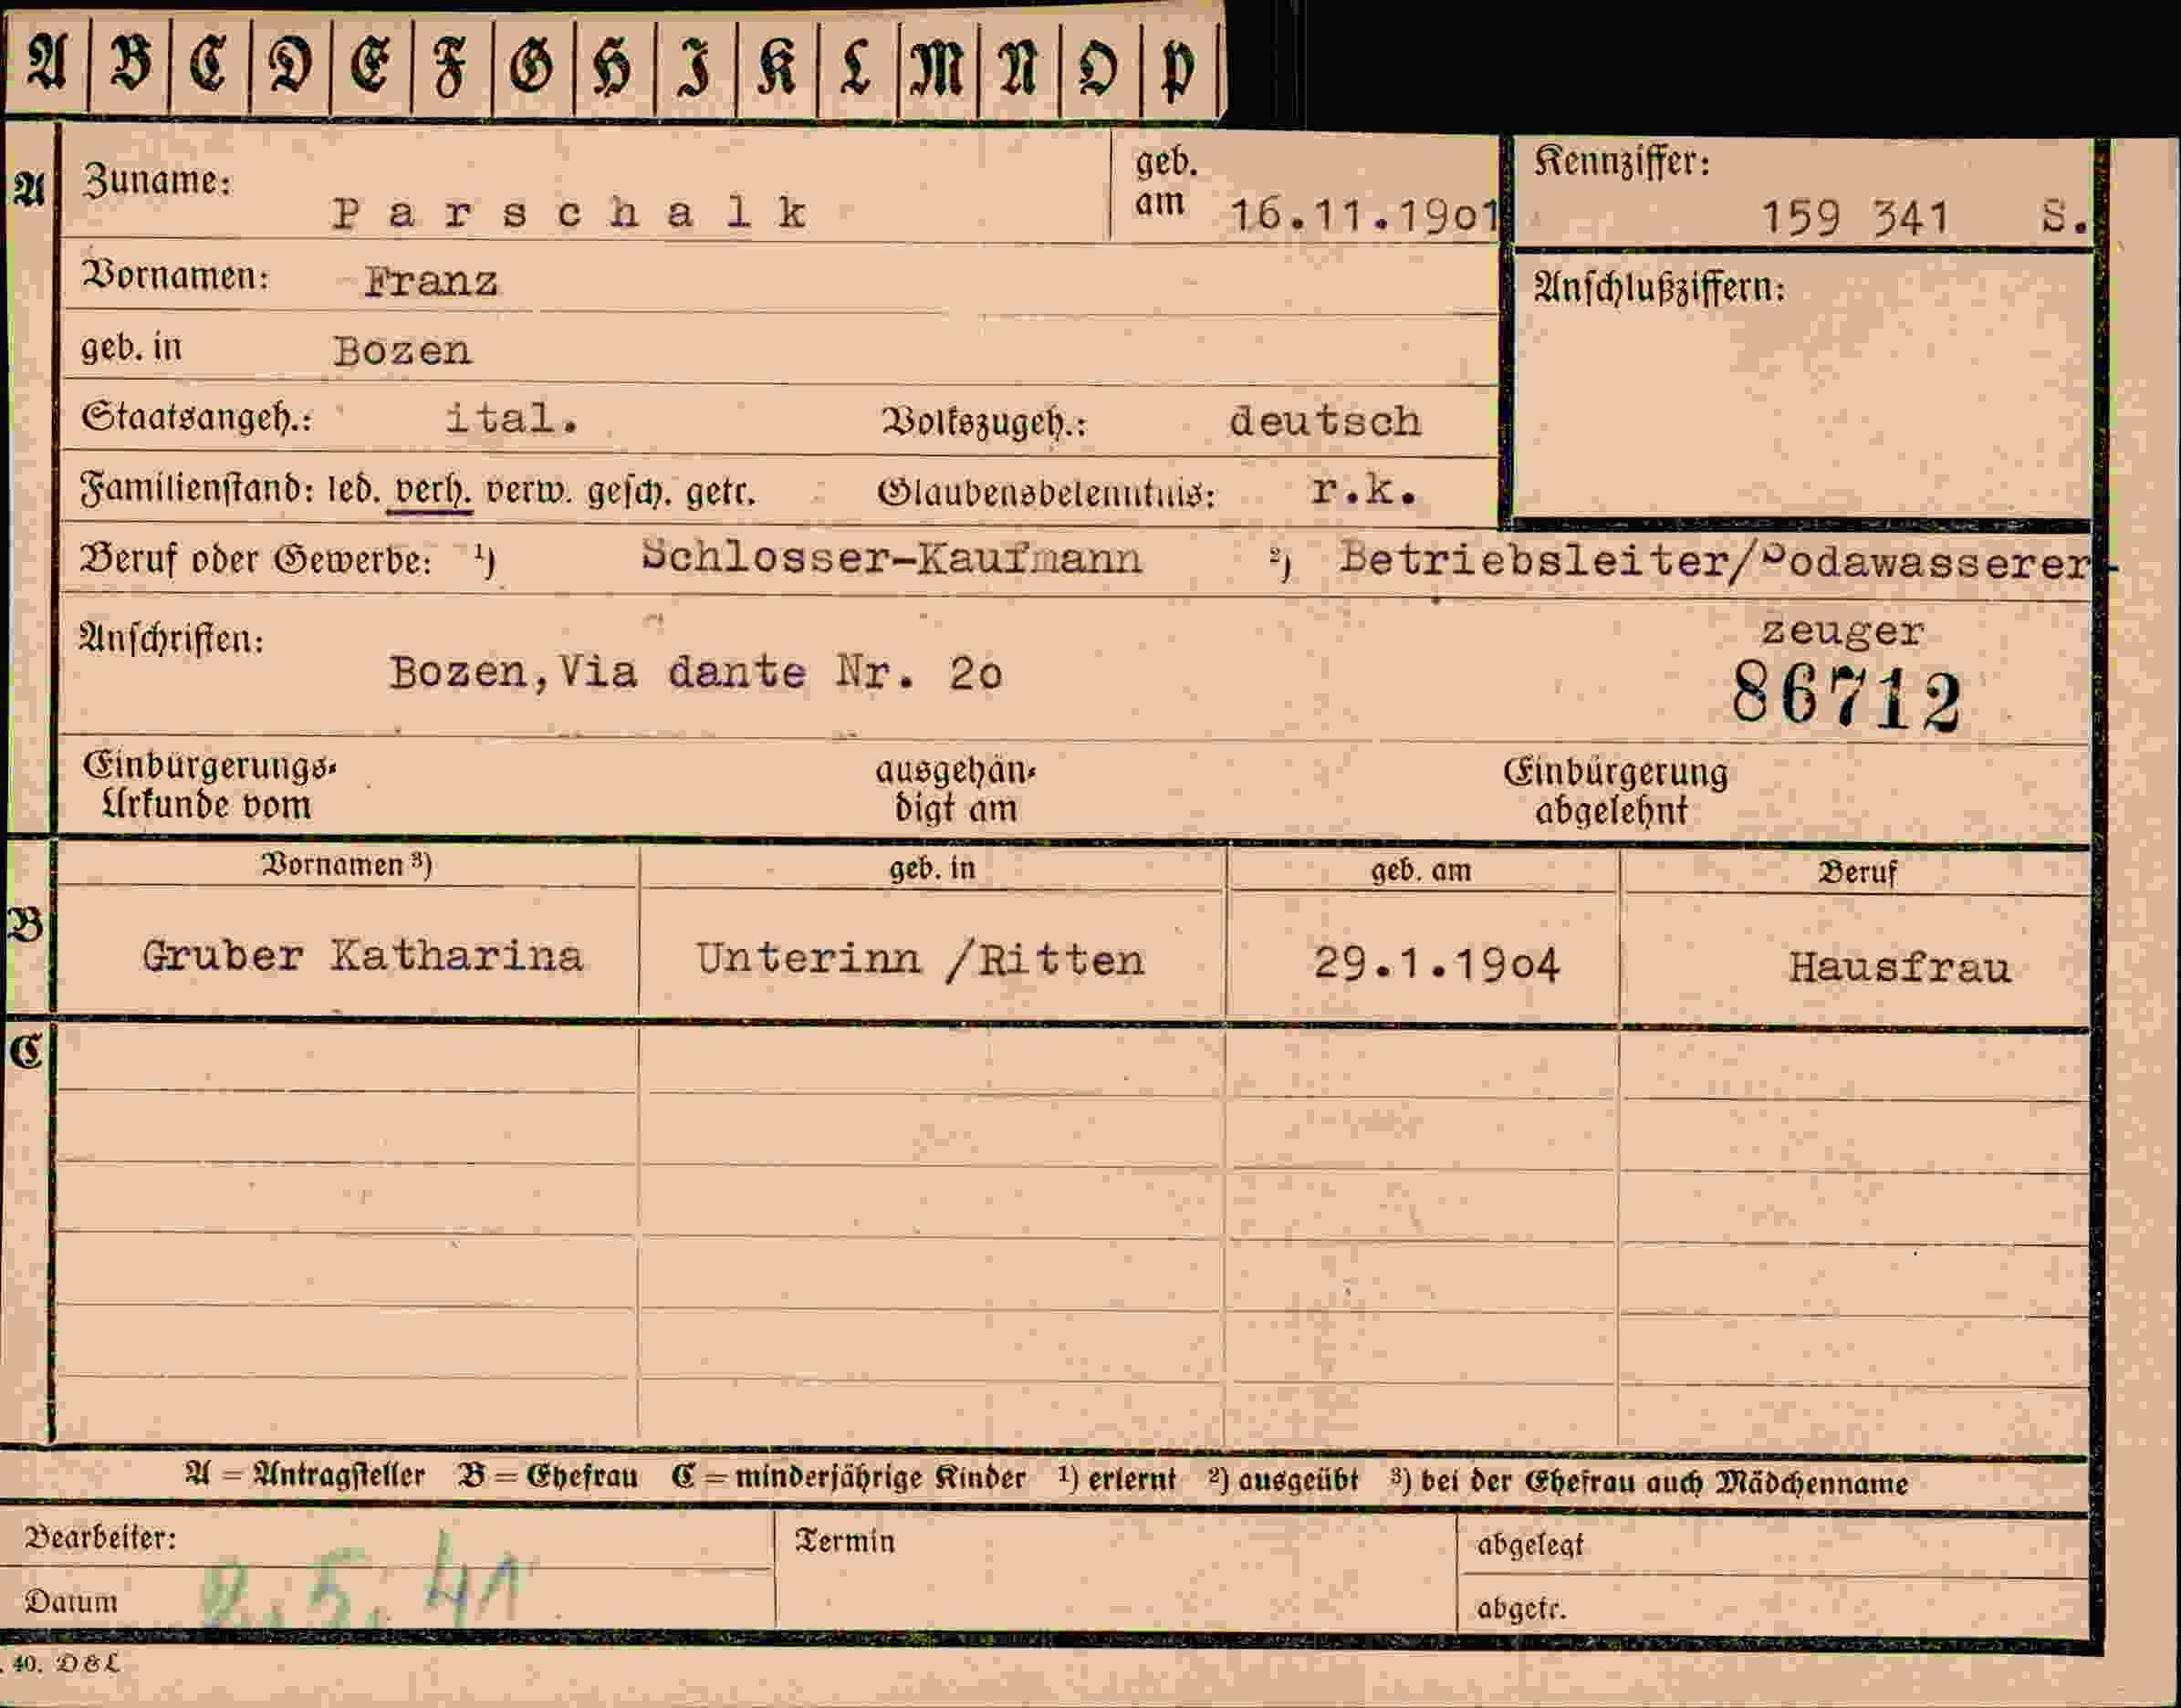 A B C D E F G H I K L M N O P
A Zuname: Parschalk geb. am 16.11.19o1 Kennziffer: 159 341 S.
Vornamen: Franz Anschlußziffern:
geb. in Bozen
Staatsangeh.: ital. Volkszugeh.: deutsch
Familienstand: led. verh. verw. gesch. getr. Glaubensbekenntnis: r.k.
Beruf oder Gewerbe: 1) Schlosser-Kaufmann 2) Betriebsleiter/Sodawasserer-
zeuger
Anschriften: Bozen,Via dante Nr. 2o 86712
Einbürgerungs- Urkunde vom ausgehän- digt am Einbürgerung abgelehnt
Vornamen 3) geb. in geb. am Beruf
B Gruber Katharina Unterinn /Ritten 29.1.19o4 Hausfrau
C
A = Antragsteller B = Ehefrau C = minderjährige Kinder 1) erlernt 2) ausgeübt 3) bei der Ehefrau auch Mädchenname
Bearbeiter: Termin abgelegt
Datum 2.5.41 abgetr.
. 40. D & L